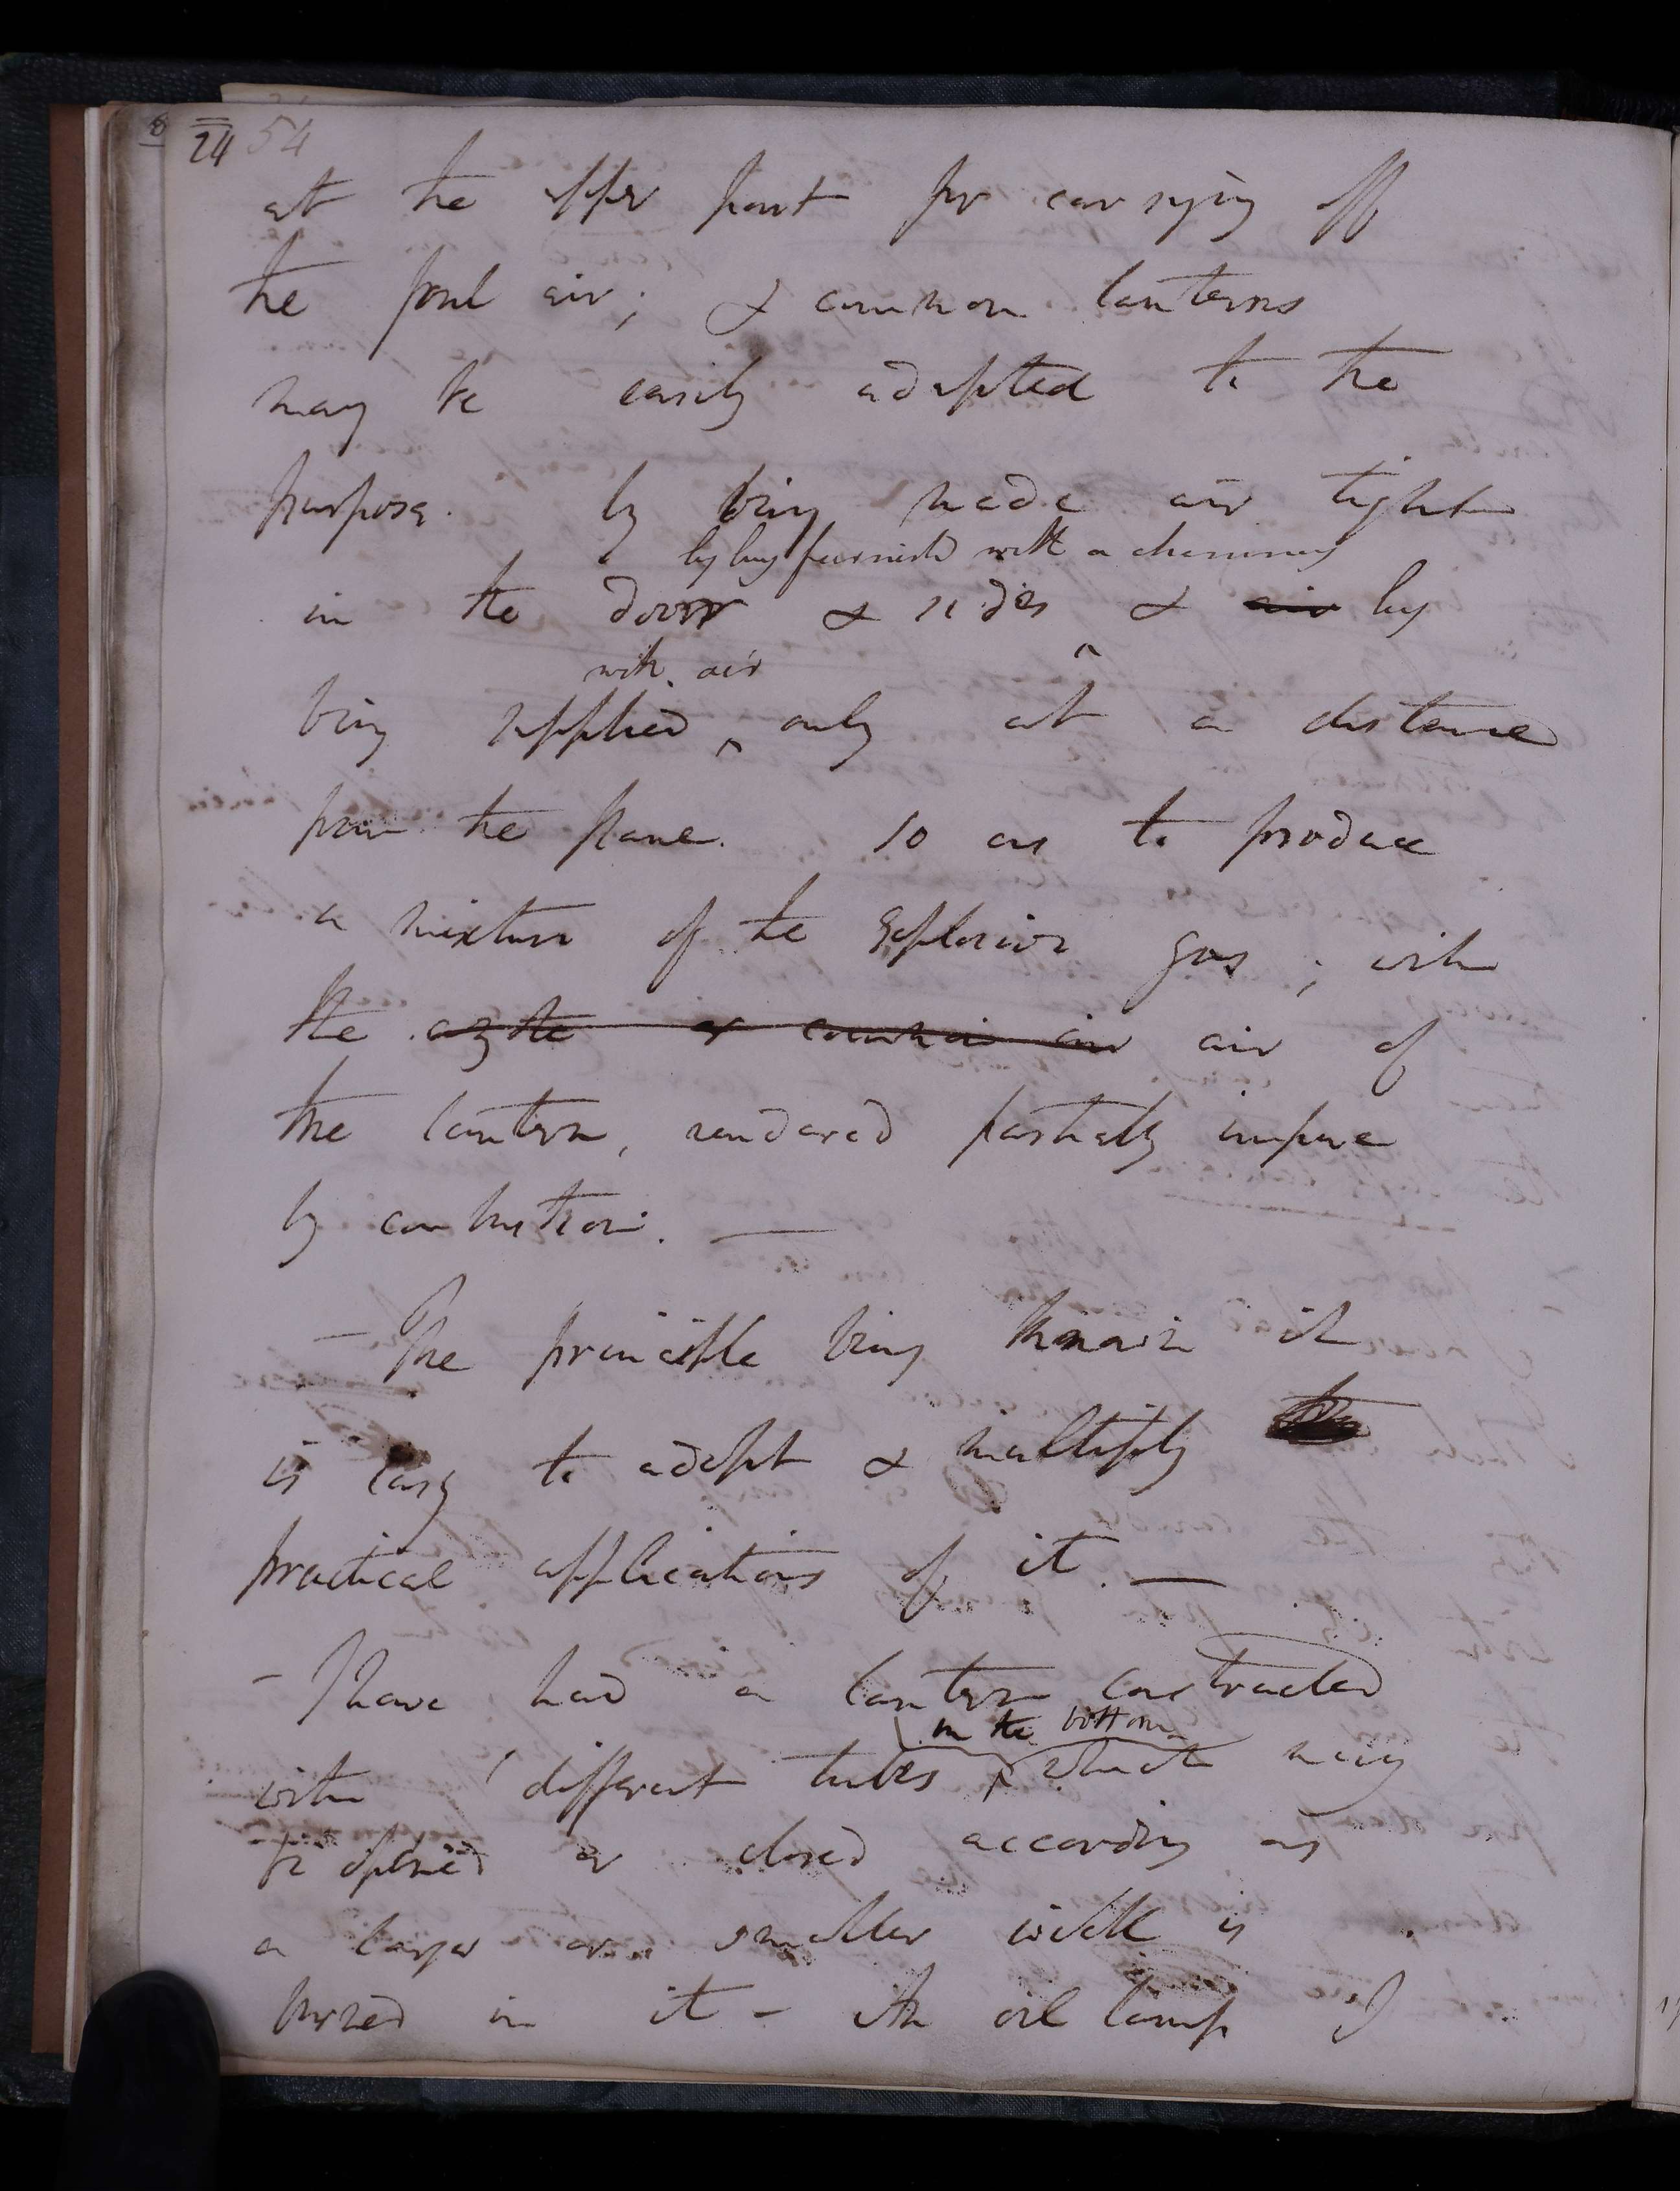 24 54
at the upper part for carrying off
the foul air; & common lanterns
may be easily adapted to the
purpose. by being made air tight
by being furnish'd with a chimney
in the door & sides & air by
with air
being supplied ^ only at a distance
from the flame. so as to produce
a mixture of the explosive gas; with
the azote or common air air of
the lantern, rendered partially impure
by combustion. —
— The principle being known it
is easy to adopt & multiply the
practical applications of it. —
- I have had a lantern constructed
in the bottom
with different tubes ^ which may
be opened or closed according as
a larger or smaller wick is
burned in it - An oil lamp I